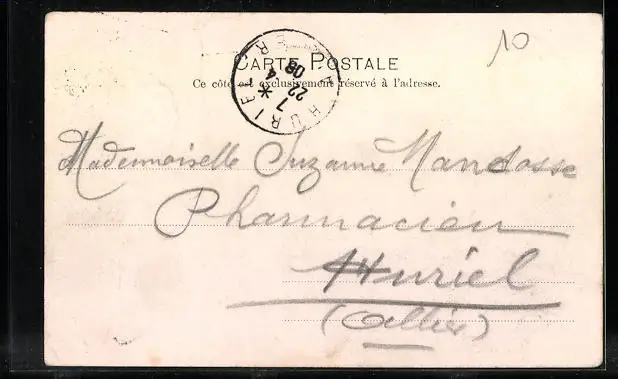 10
CARTE POSTALE
Ce côté est exclusivement réservé à l'adresse.
HURIEL
7
22 4
08
Mademoiselle Suzanne Mandosse
Pharmacien
Huriel
(Allier)